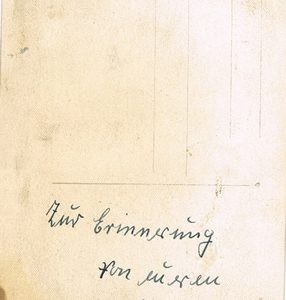 Zur Erinnerung
von euren